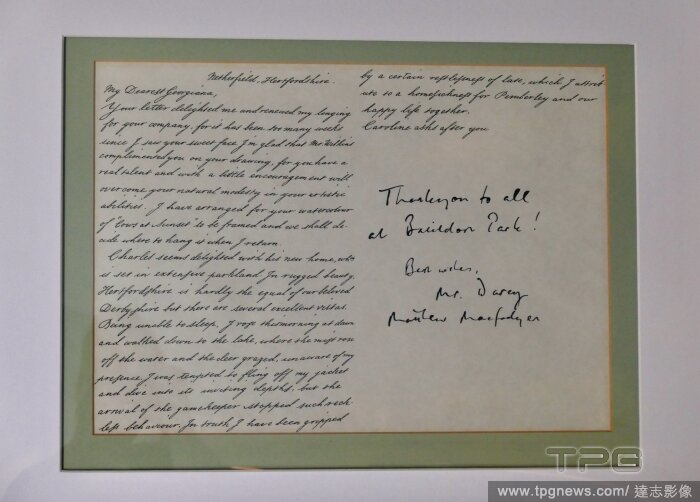 Netherfield, Hertfordshire.
My Dearest Georgiana,
Your letter delighted me and renewed my longing
for your company, for it has been too many weeks
since I saw your sweet face. I'm glad that Mr Watkins
complimented you on your drawing, for you have a
real talent and with a little encouragement will
overcome your natural modesty in your artistic
abilities. I have arranged for your watercolour
of "Cows at Sunset" to be framed and we shall de-
cide where to hang it when I return.
Charles seems delighted with his new home, which
is set in extensive parkland. In rugged beauty,
Hertfordshire is hardly the equal of our beloved
Derbyshire but there are several excellent vistas.
Being unable to sleep, I rose this morning at dawn
and walked down to the lake, where the mist rose
off the water and the deer grazed, unaware of my
presence. I was tempted to fling off my jacket
and dive into its inviting depths, but the
arrival of the gamekeeper stopped such reck-
less behaviour. In truth, I have been gripped
by a certain restlessness of late, which I attrib
ute to a homesickness for Pemberley and our
happy life together.
Caroline asks after you
Thankyou to all
at Basildon Park!
Best wishes,
Mr. Darcy
Matthew Macfadyen
TPG
www.tpgnews.com / 達志影像